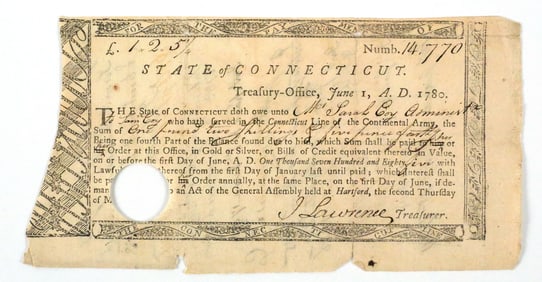 FOR THE PAY MENT OF
£. 1. 2. 5¼ Numb. 14.770
STATE of CONNECTICUT.
Treasury-Office, June 1, A. D. 1780.
THE State of CONNECTICUT doth owe unto Mrs Sarah Coy
who hath served in the Connecticut Line of the Continental Army, the
Sum of One pound two shillings & five pence
Being one fourth Part of the Balance found due to him, which Sum shall be paid to him or
his Order at this Office, in Gold or Silver, or Bills of Credit equivalent thereto in Value,
on or before the first Day of June, A. D. One Thousand Seven Hundred and Eighty-five with
Lawful thereof from the first Day of January last until paid; which Interest shall
be paid or his Order annually, at the same Place, on the first Day of June, if de-
man an Act of the General Assembly held at Hartford, the second Thursday
of M
J Lawrence Treasurer.
THE CON NEC TI